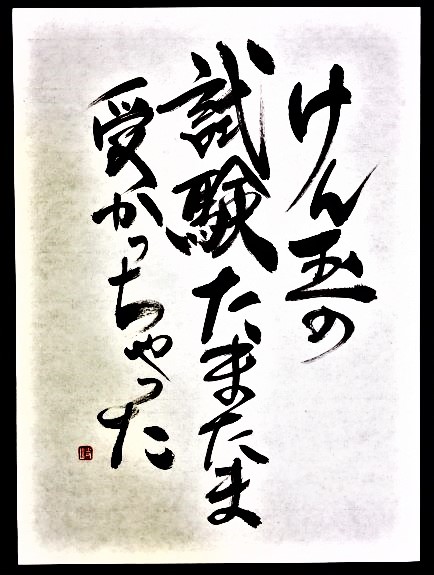 けん玉の
試験たまたま
受かっちゃった